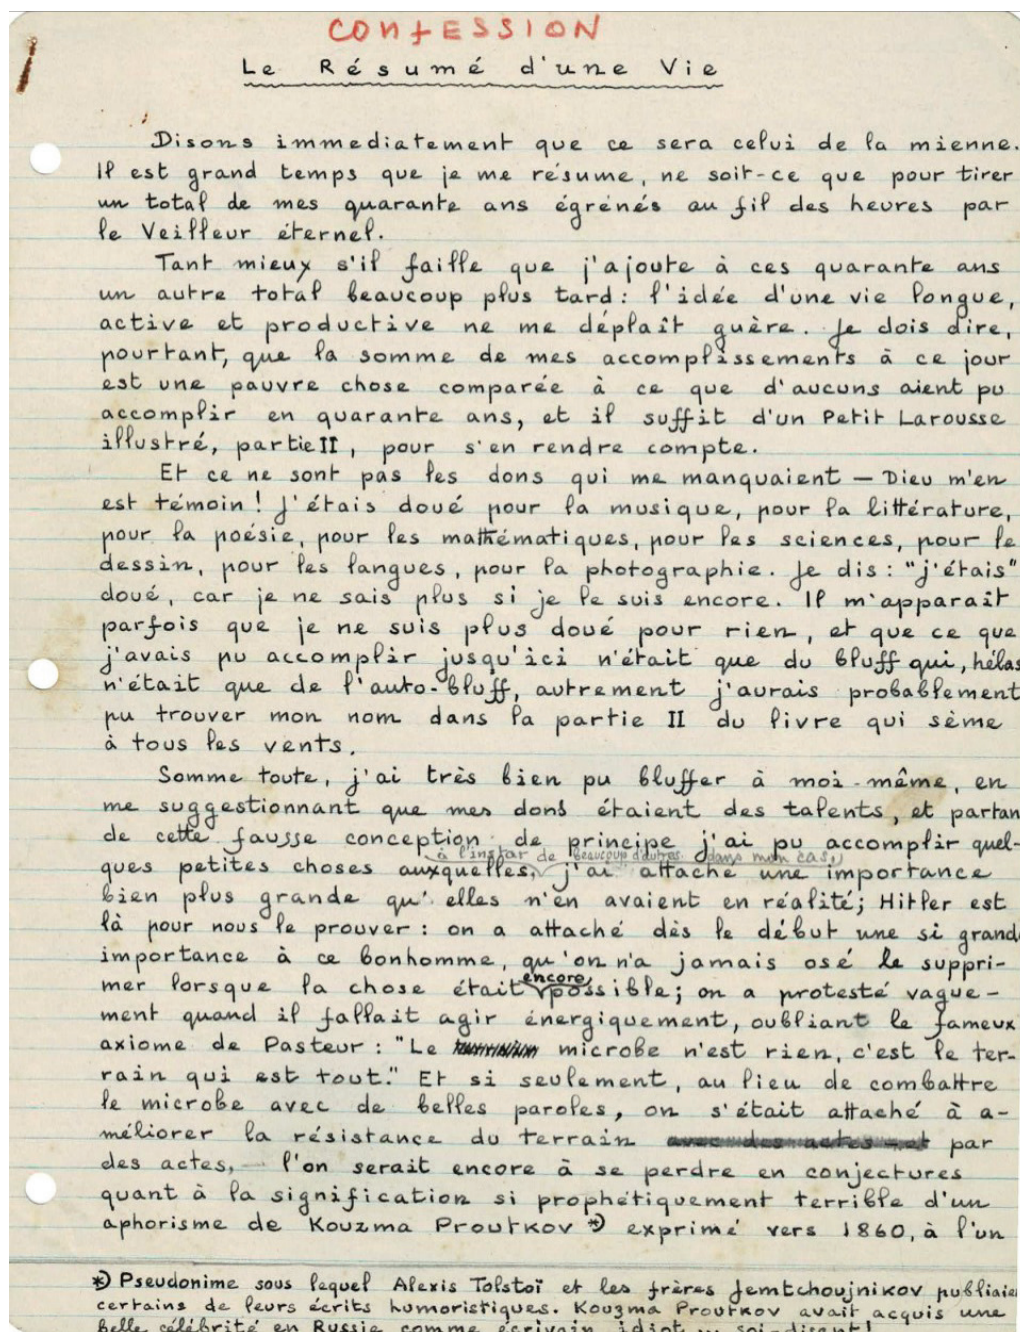 CONFESSION
Le Résumé d'une Vie
Disons immediatement que ce sera celui de la mienne.
Il est grand temps que je me résume, ne soit-ce que pour tirer
un total de mes quarante ans égrénés au fil des heures par
le Veilleur éternel.
Tant mieux s'il faille que j'ajoute à ces quarante ans
un autre total beaucoup plus tard: l'idée d'une vie longue,
active et productive ne me déplaît guère. Je dois dire,
pourtant, que la somme de mes accomplissements à ce jour
est une pauvre chose comparée à ce que d'aucuns aient pu
accomplir en quarante ans, et il suffit d'un Petit Larousse
illustré, partie II, pour s'en rendre compte.
Et ce ne sont pas les dons qui me manquaient — Dieu m'en
est témoin! J'étais doué pour la musique, pour la littérature,
pour la poésie, pour les mathématiques, pour les sciences, pour le
dessin, pour les langues, pour la photographie. Je dis: "j'étais"
doué, car je ne sais plus si je le suis encore. Il m'apparaît
parfois que je ne suis plus doué pour rien, et que ce que
j'avais pu accomplir jusqu'ici n'était que du bluff qui, hélas
n'était que de l'auto-bluff, autrement j'aurais probablement
pu trouver mon nom dans la partie II du livre qui sème
à tous les vents.
Somme toute, j'ai très bien pu bluffer à moi-même, en
me suggestionnant que mes dons étaient des talents, et partan
de cette fausse conception de principe j'ai pu accomplir quel-
à l'instar de beaucoup d'autres dans mon cas,
ques petites choses auxquelles, j'ai attaché une importance
bien plus grande qu'elles n'en avaient en réalité; Hitler est
là pour nous le prouver: on a attaché dès le début une si grande
importance à ce bonhomme, qu'on n'a jamais osé le suppri-
encore
mer lorsque la chose était possible; on a protesté vague-
ment quand il fallait agir énergiquement, oubliant le fameux
axiome de Pasteur: "Le microbe n'est rien, c'est le ter-
rain qui est tout." Et si seulement, au lieu de combattre
le microbe avec de belles paroles, on s'était attaché à a-
méliorer la résistance du terrain avec des actes et par
des actes, l'on serait encore à se perdre en conjectures
quant à la signification si prophétiquement terrible d'un
aphorisme de Kouzma Proutkov *) exprimé vers 1860, à l'un
*) Pseudonime sous lequel Alexis Tolstoï et les frères Jemtchoujnikov publiaie
certains de leurs écrits humoristiques. Kouzma Proutkov avait acquis une
belle célébrité en Russie comme écrivain idiot … soi-disant!